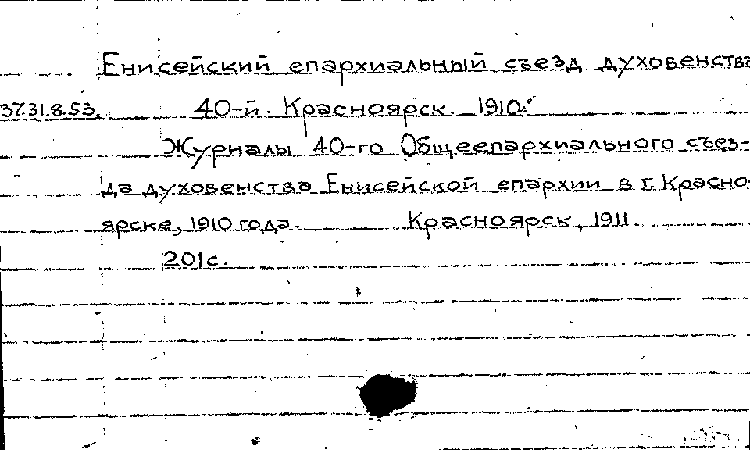 Енисейский епархиальный съезд духовенства
37.31.8.53. 40-й. Красноярск. 1910.
Журналы 40-го Общеепархиального съез-
да духовенства Енисейской епархии в г. Красно-
ярске, 1910 года. Красноярск, 1911.
201с.